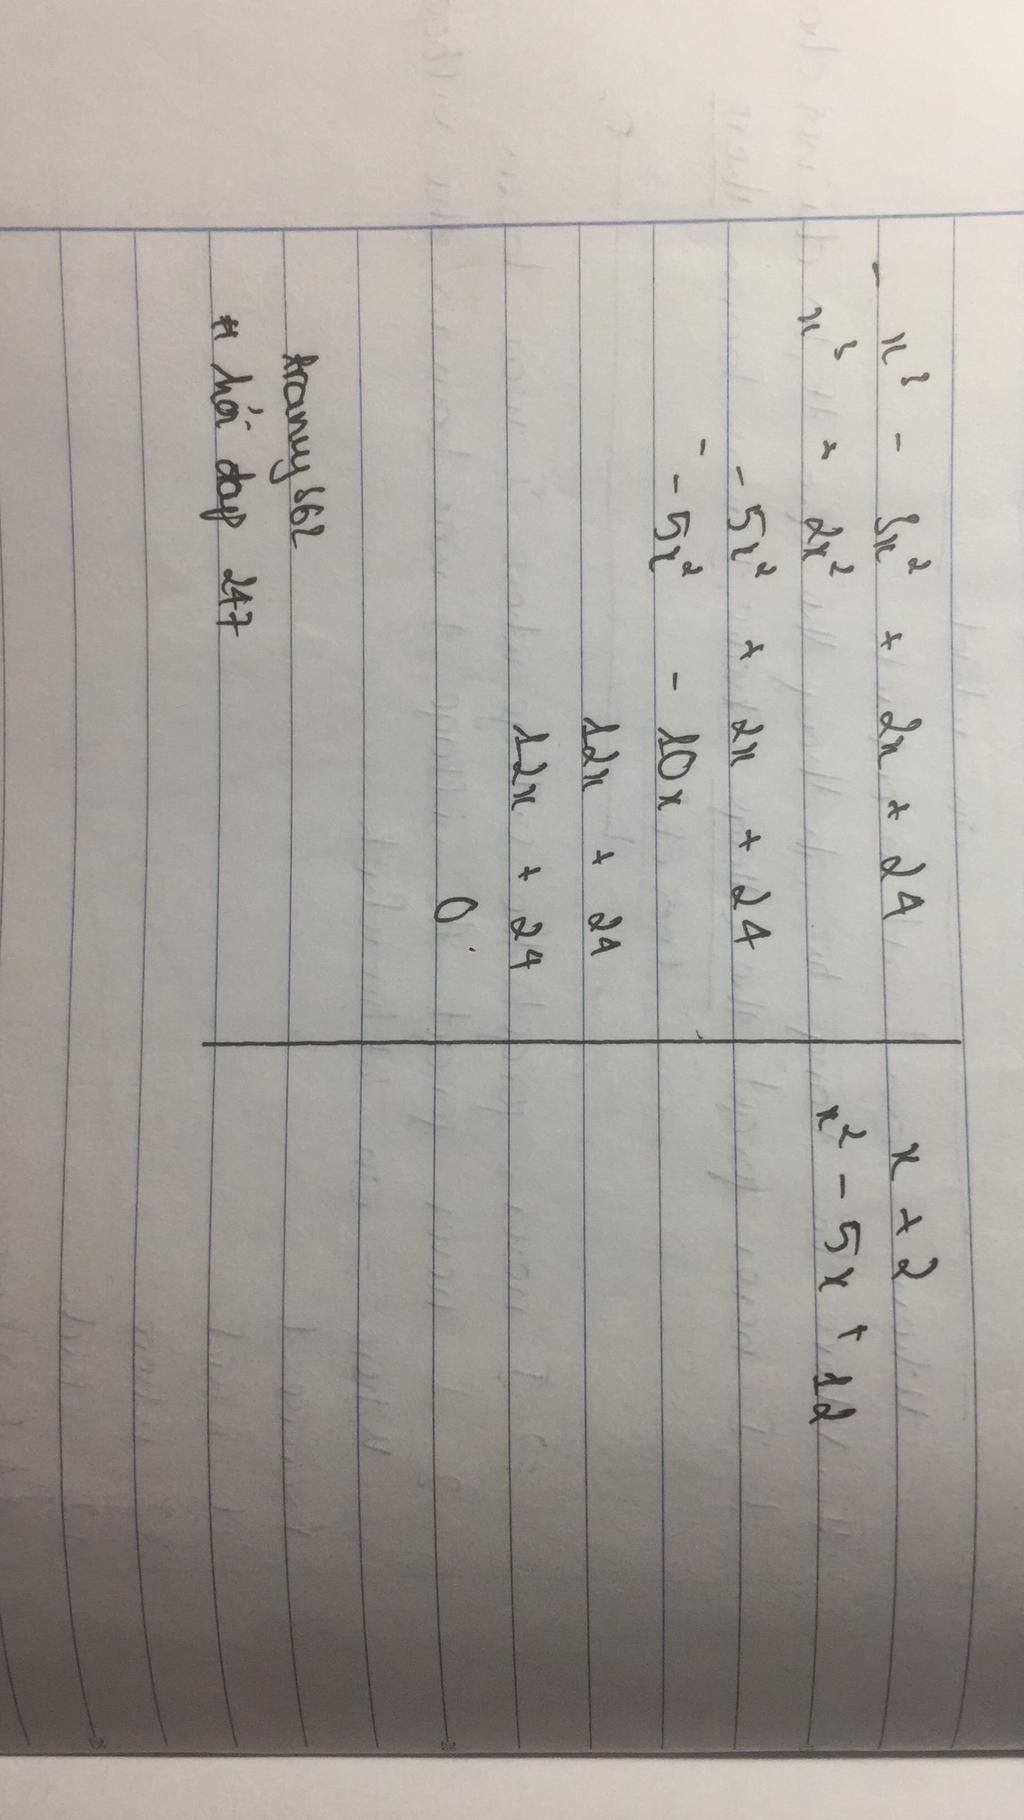 x³ - 3x² + 2x + 24 | x + 2
-
x³ + 2x² | x² - 5x + 12
-5x² + 2x + 24
-
-5x² - 10x
12x + 24
12x + 24
0
# hỏi đáp 247